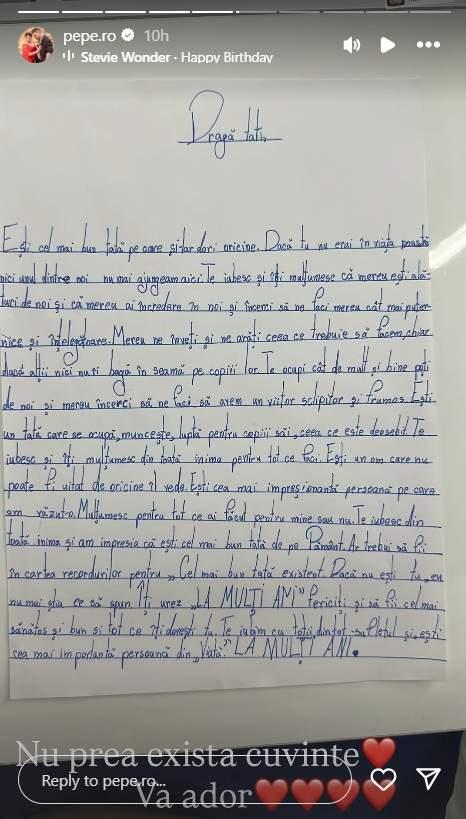 pepe.ro 10h
Stevie Wonder · Happy Birthday
Dragă tati,
Ești cel mai bun tată pe care și-l ar dori oricine. Dacă tu nu erai în viața noastră
nici unul dintre noi nu mai ajungeam aici. Te iubesc și îți mulțumesc că mereu ești ală-
turi de noi și că mereu ai încredere în noi și încerci să ne faci mereu cât mai puter-
nice și înțelegătoare. Mereu ne înveți și ne arăți ceea ce trebuie să facem, chiar
dacă alții nici nu îi bagă în seamă pe copiii lor. Te ocupi cât de mult și bine poți
de noi și mereu încerci să ne faci să avem un viitor sclipitor și frumos. Ești
un tată care se ocupă, muncește, luptă pentru copiii săi, ceea ce este deosebit. Te
iubesc și îți mulțumesc din toată inima pentru tot ce faci. Ești un om care nu
poate fi uitat de oricine îl vede. Ești cea mai impresionantă persoană pe care
am văzut-o. Mulțumesc pentru tot ce ai făcut pentru mine sau nu. Te iubesc din
toată inima și am impresia că ești cel mai bun tată de pe Pământ. Ar trebui să fii
în cartea recordurilor pentru „Cel mai bun tată existent. Dacă nu ești tu, eu
nu mai știu ce să spun. Îți urez „LA MULȚI ANI" fericiți și să fii cel mai
sănătos și bun și tot ce îți dorești tu. Te iubim cu toții din tot sufletul și ești
cea mai importantă persoană din „Viață". LA MULȚI ANI.
Nu prea exista cuvinte❤️
Reply to pepe.ro...
Va ador❤️❤️❤️❤️